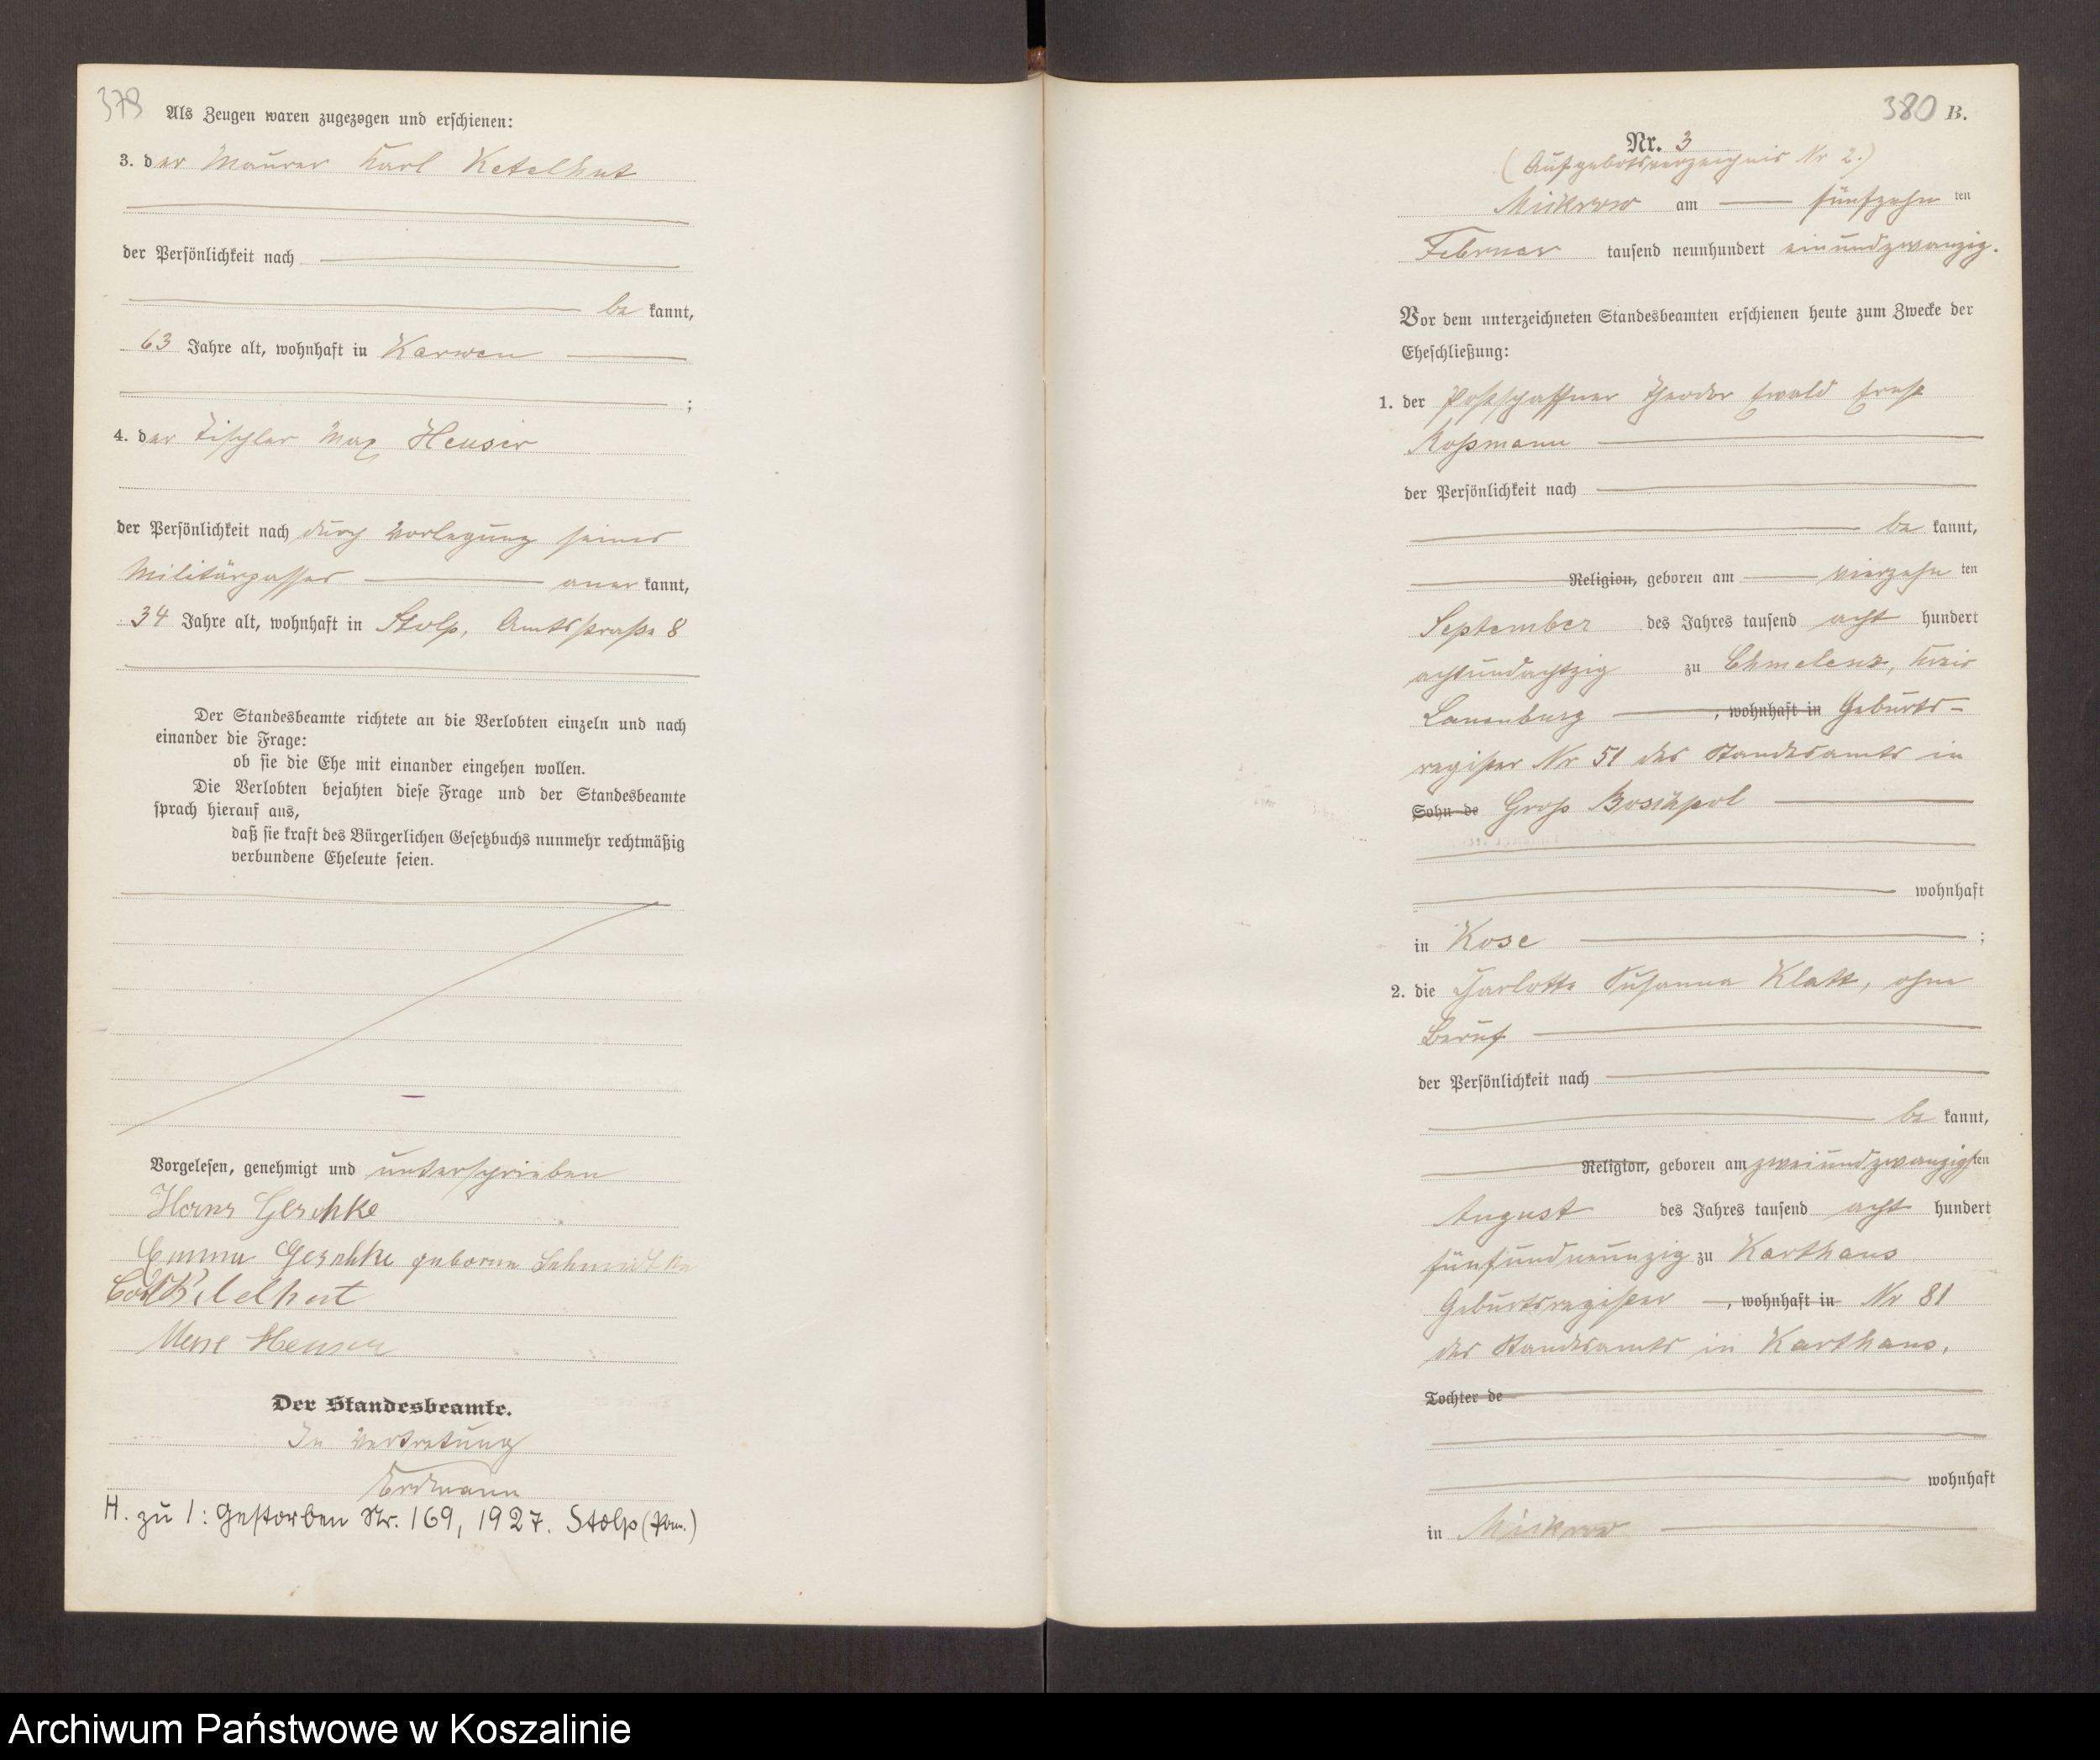 379
Als Zeugen waren zugezogen und erschienen:
3. der Maurer Karl Ketelhut
der Persönlichkeit nach
be kannt,
63 Jahre alt, wohnhaft in Karwen
;
4. der Tischler Max Heuser
der Persönlichkeit nach durch Vorlegung seines
Militärpasses aner kannt,
34 Jahre alt, wohnhaft in Stolp, Amtsstraße 8
Der Standesbeamte richtete an die Verlobten einzeln und nach
einander die Frage:
ob sie die Ehe mit einander eingehen wollen.
Die Verlobten bejahten diese Frage und der Standesbeamte
sprach hierauf aus,
daß sie kraft des Bürgerlichen Gesetzbuchs nunmehr rechtmäßig
verbundene Eheleute seien.
Vorgelesen, genehmigt und unterschrieben
Hans Geschke
Emma Geschke geborene Schmidtke
Ketelhut
Heuser
Der Standesbeamte.
In Vertretung
Erdmann
H. zu 1: Gestorben Nr. 169, 1927. Stolp (Pom.)
380 B.
Nr. 3
(Aufgebotsverzeichnis Nr 2.)
Mickrow am fünfzehn ten
Februar tausend neunhundert einundzwanzig.
Vor dem unterzeichneten Standesbeamten erschienen heute zum Zwecke der
Eheschließung:
1. der Postschaffner Theodor Ewald Ernst
Roßmann
der Persönlichkeit nach
be kannt,
Religion, geboren am vierzehn ten
September des Jahres tausend acht hundert
achtundachtzig zu Chmelenz, Kreis
Lauenburg , wohnhaft in Geburts-
register Nr 51 des Standesamts in
Sohn de Groß Boschpol
wohnhaft
in Kose ;
2. die Charlotte Susanna Klatt, ohne
Beruf
der Persönlichkeit nach
be kannt,
Religion, geboren am zweiundzwanzigsten
August des Jahres tausend acht hundert
fünfundneunzig zu Karthaus
Geburtsregister , wohnhaft in Nr 81
des Standesamts in Karthaus,
Tochter de
wohnhaft
in Mickrow
Archiwum Państwowe w Koszalinie